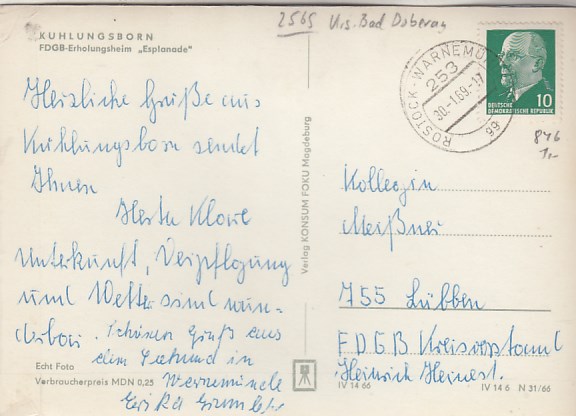 2565 Krs. Bad Doberan
KUHLUNGSBORN
FDGB-Erholungsheim „Esplanade"
ROSTOCK-WARNEMÜ
253
30.-1.69.-17
99
DEUTSCHE
DEMOKRATISCHE REPUBLIK
10
846
1,-
Herzliche Grüße aus
Kühlungsborn sendet
Ihnen
Herta
Unterkunft, Verpflegung
und Wetter sind wun-
derbar. Schönen Gruß aus
dem in
Warnemünde
Erika
Kollegin
Meißner
755 Lübben
FDGB Kreisvorstand
Heinrich
Verlag KONSUM FOKU Magdeburg
Echt Foto
Verbraucherpreis MDN 0,25
IV 14 66
IV 14 6 N 31/66